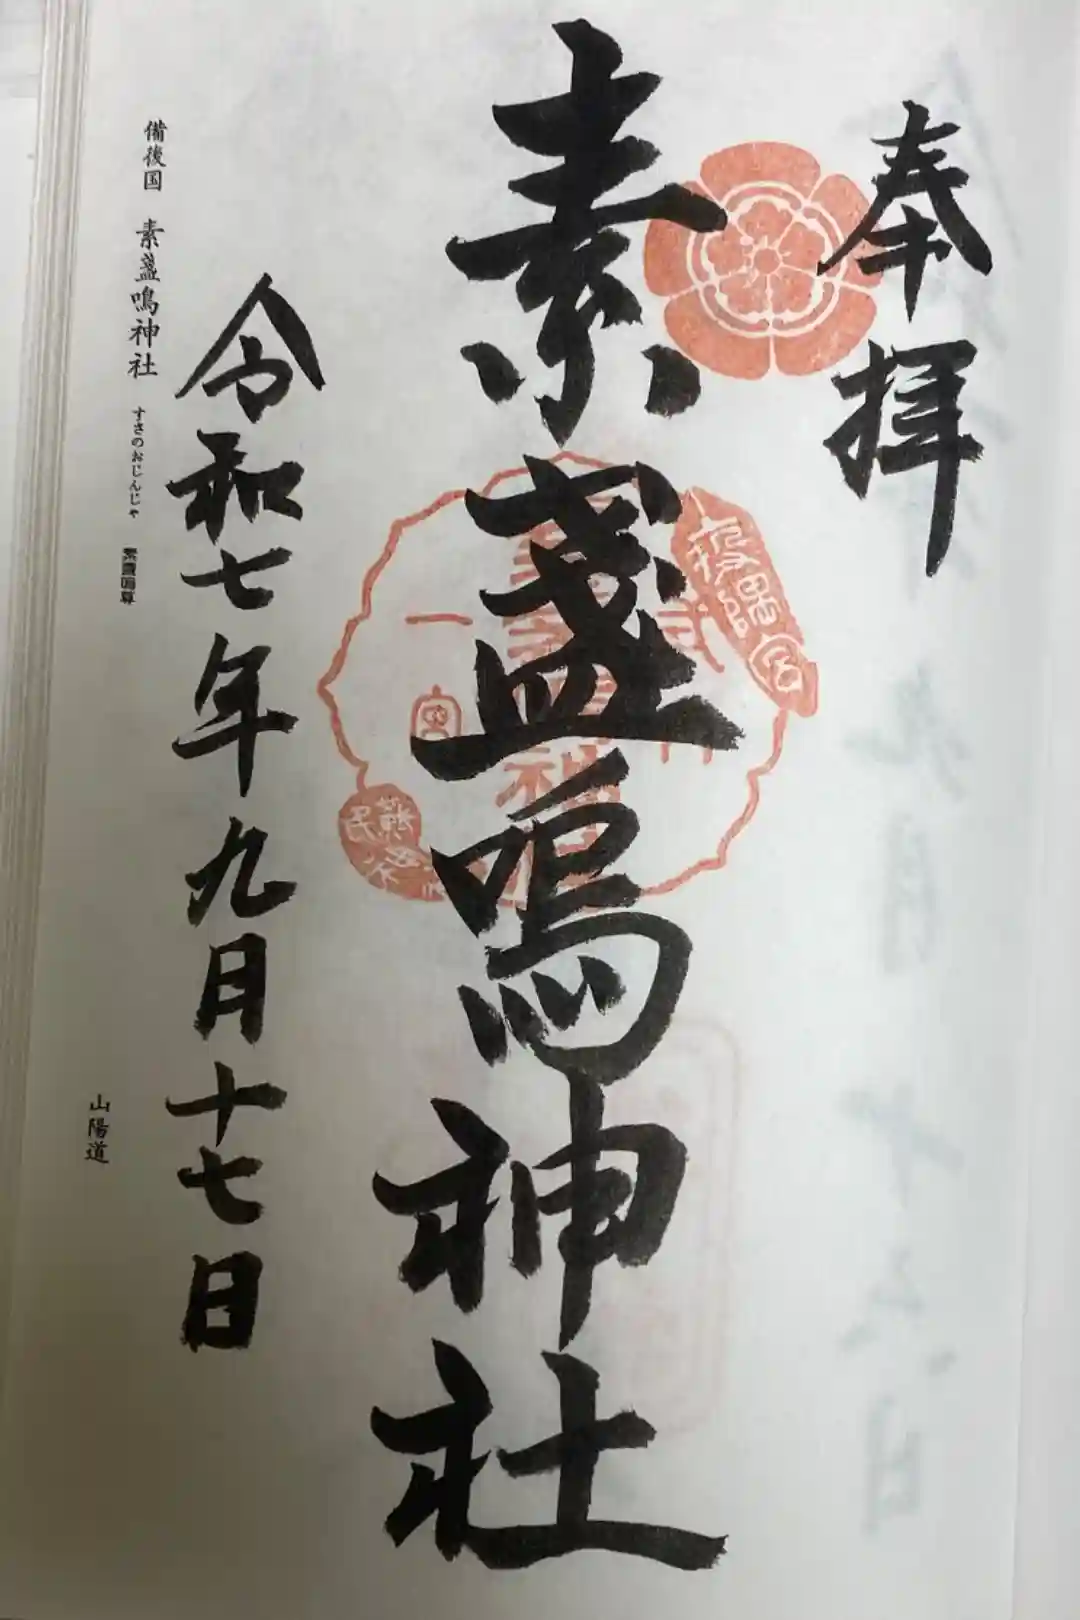 奉拝
素盞嗚神社
一宮
令和七年九月十七日
備後国 素盞嗚神社 すさのおじんじゃ 素盞嗚尊
山陽道